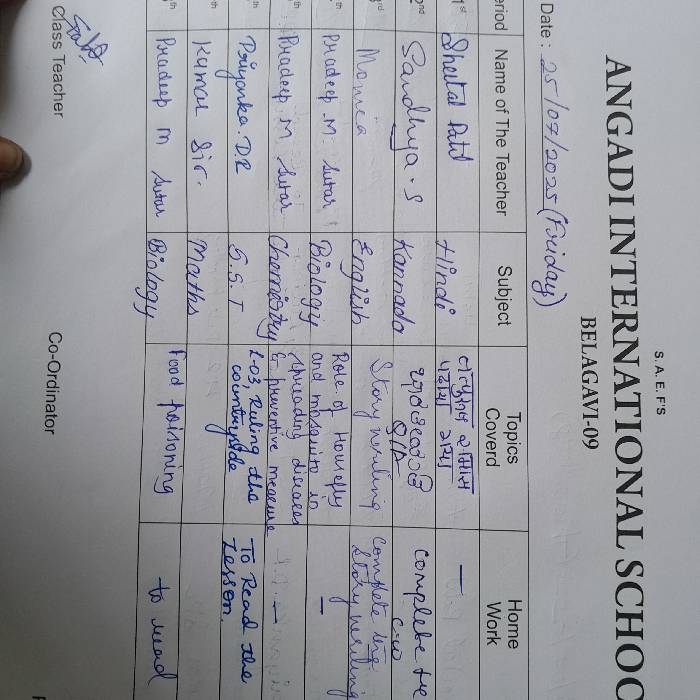 S. A. E. F'S
ANGADI INTERNATIONAL SCHOO
BELAGAVI-09
Date : 25/07/2025 (Friday)
eriod Name of The Teacher Subject Topics Coverd Home Work
1st Sheetal Patil Hindi —
2nd Sandhya . S Kannada Q/A complete the C.W
rd Monica English Story writing Complete the story writing
th Pradeep. M. Sutar Biology Role of Housefly and mosquito in spreading diseases & preventive measure –
th Pradeep. M. Sutar Chemistry
th Priyanka. D.R S.S.T L-03, Ruling the countryside To Read the Lesson.
th Kumar Sir. Maths
th Pradeep M Sutar Biology Food poisoning to read
Class Teacher Co-Ordinator